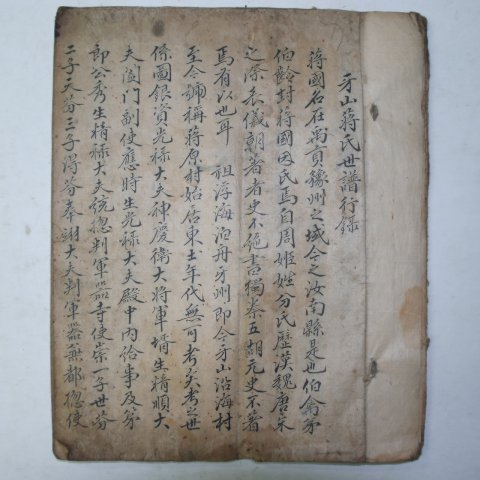 牙山蔣氏世譜行錄
蔣國名在禹貢豫州之域今之汝南縣是也伯禽弟
伯齡封蔣國因氏焉自周姬姓分氏歷漢魏唐宋
之際衣儀朝著者史不絶書獨秦五胡元史不著
焉有以也耳 祖浮海泊舟牙州即今牙山沿海村
至今號稱蔣原村始居東土年代無可考矣考之世
係圖銀靑光祿大夫神慶衛大將軍壻生精順大
夫閤门副使應時生光祿大夫殿中內給事及第
郎公秀生精祿大夫統摠判軍器寺使崇一子世芬
二子大芬三子得芬奉翊大夫判軍器無都摠使